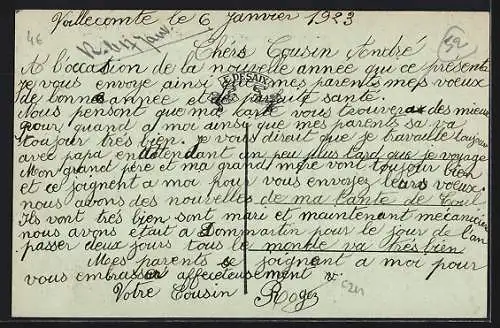 46
Voillecomte le 6 Janvier 1923
52
Chers Cousin André
A l'occasion de la nouvelle année qui ce présente
je vous envoye ainsi que mes parents mes voeux
de bonne année et de parfait santé.
Nous pensont que ma carte vous trouvera des mieux
pour quand a moi ainsi que mes parents sa va
toujour très bien. je vous dirait que je travaille toujour
avec papa en attendant un peu plus tard que je voyage
Mon grand père et ma grand mère vont toujour bien
et ce joignent a moi pour vous envoyez leurs voeux.
nous avons des nouvelles de ma tante de
Ils vont très bien sont mari et maintenant mécanicien
nous avons était a Dommartin pour le jour de l'an
passer deux jours tous le monde va très bien
Mes parents se joignent a moi pour
vous embrasser affectetusement
Votre Cousin Roger
DESAIX